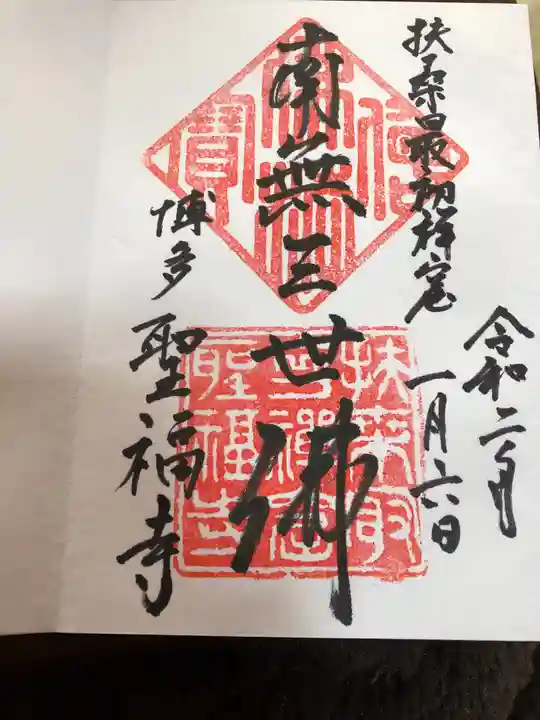 令和二年
一月六日
扶桑最初禅窟
南無三世佛
博多
聖福寺
佛法僧寳
扶桑最
初禅窟
聖福寺